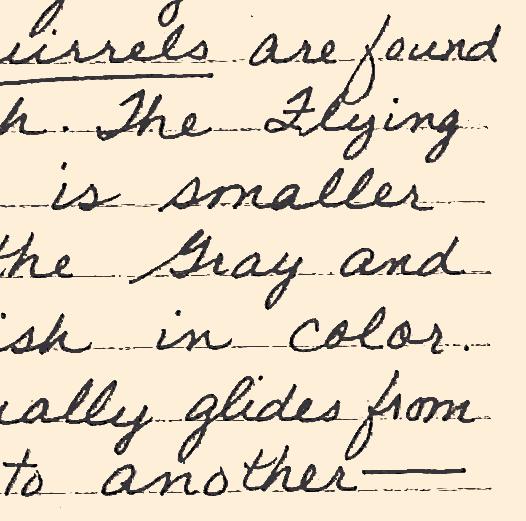 uirrels are found
h. The Flying
is smaller
the Gray and
ish in color.
ually glides from
to another—